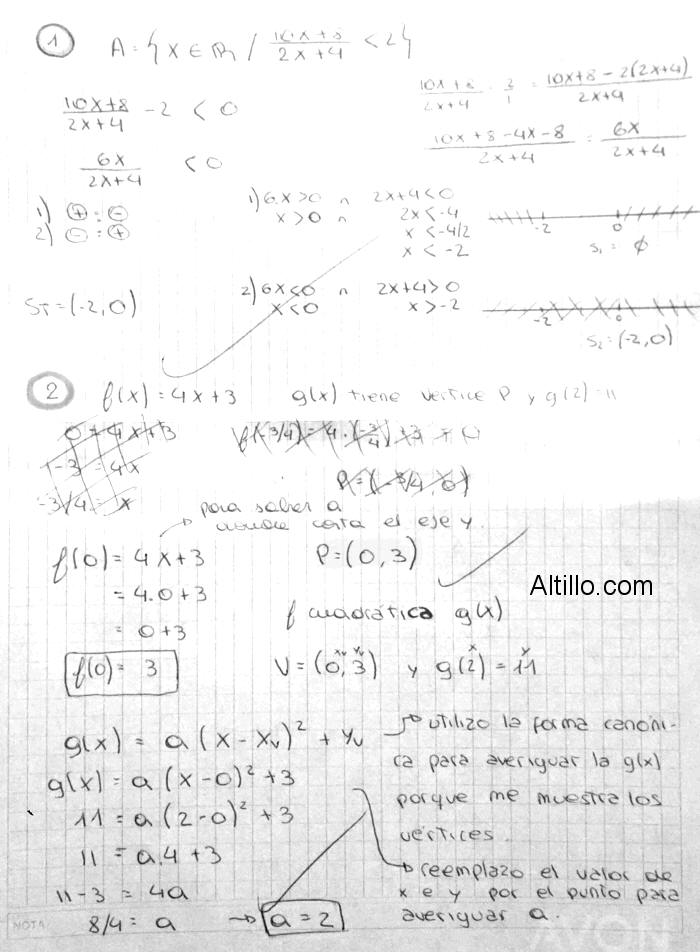 1 A = { x ∈ ℝ / 10x+8 / 2x+4 < 2 }
10x+8 / 2x+4 - 2 < 0
10x+8 / 2x+4 - 2/1 = 10x+8 - 2(2x+4) / 2x+4
6x / 2x+4 < 0
10x+8-4x-8 / 2x+4 = 6x / 2x+4
1) ⊕ : ⊖
2) ⊖ : ⊕
1) 6x>0 ∩ 2x+4<0
x>0 ∩ 2x<-4
x < -4/2
x < -2
-2 0
S₁ = ∅
ST = (-2,0)
2) 6x<0 ∩ 2x+4>0
x<0 x>-2
-2 0
S₂ = (-2,0)
2 f(x) = 4x+3 g(x) tiene vertice P y g(2)=11
0 = 4x+3 f(-3/4) = 4.(-3/4)+3 = 0
-3 = 4x
-3/4 = x P=(-3/4, 0)
para saber a
donde corta el eje y.
f(0) = 4x+3 P=(0,3)
= 4.0+3
Altillo.com
= 0+3 f cuadrática g(x)
f(0) = 3 xv yv x y
V = (0,3) y g(2) = 11
g(x) = a (x-xv)² + yv
utilizo la forma canóni-
ca para averiguar la g(x)
porque me muestra los
vértices.
g(x) = a (x-0)² + 3
11 = a (2-0)² + 3
11 = a.4 + 3
11-3 = 4a
8/4 = a → a = 2
reemplazo el valor de
x e y por el punto para
averiguar a.
NOTA
AVON